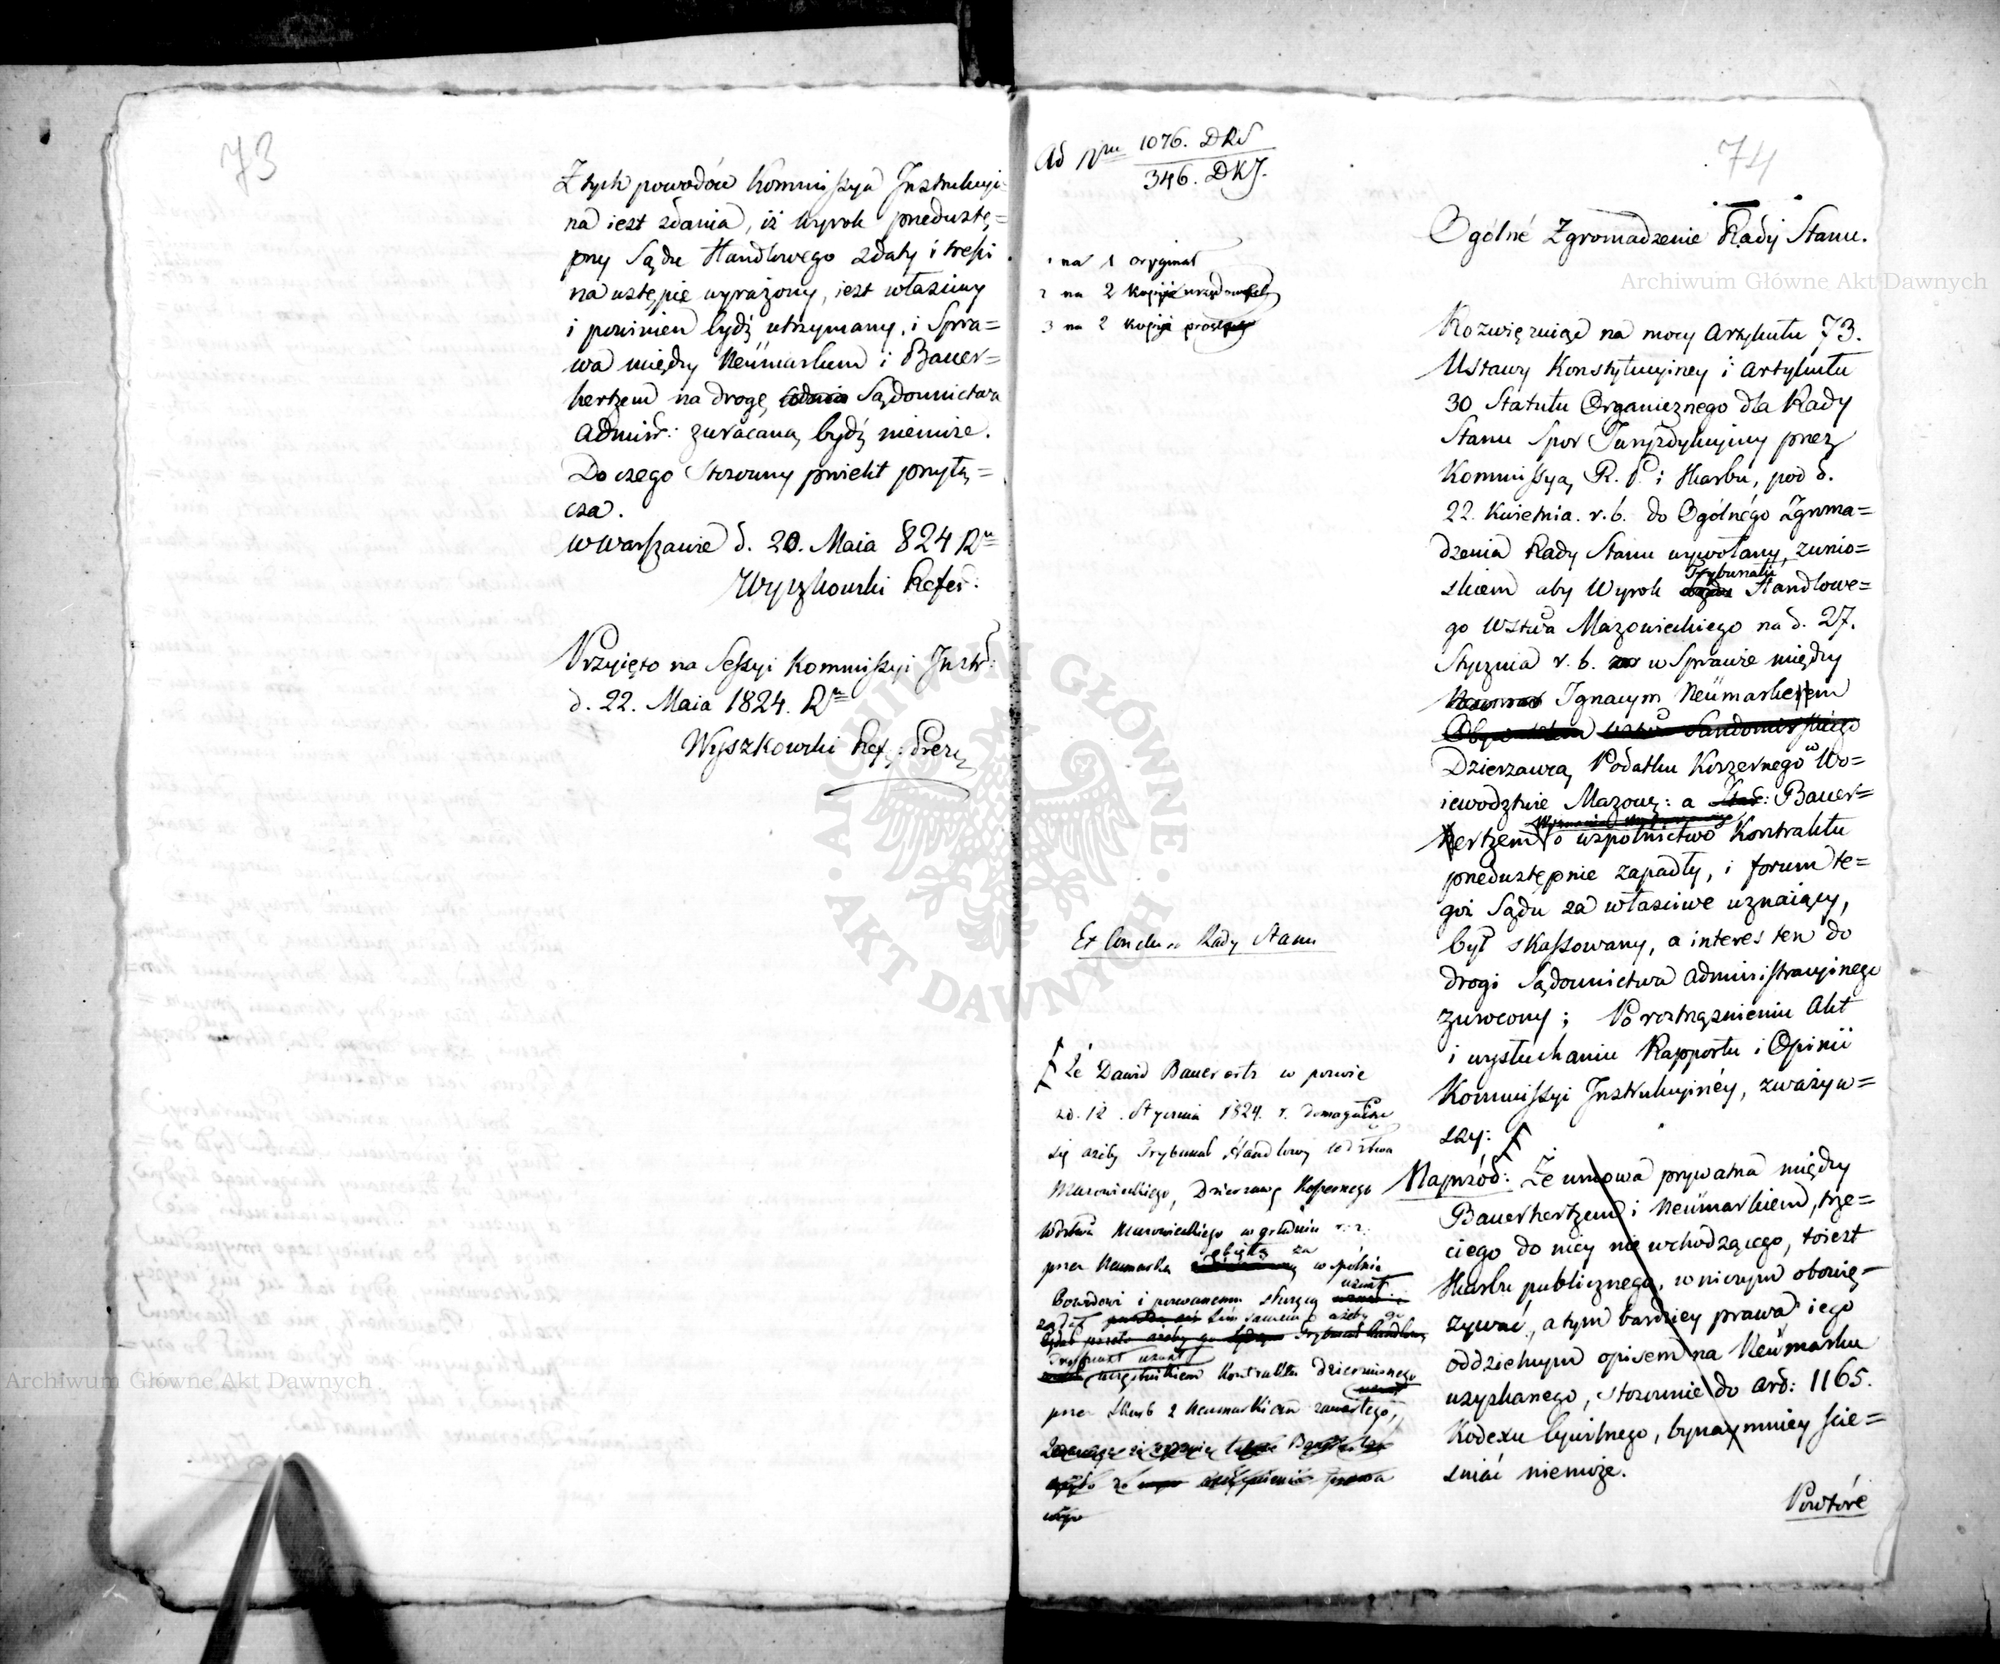 73
Z tych powodów Kommissya Instrukcyi-
na iest zdania, iż wyrok przedustę-
pny Sądu Handlowego zdaty i treści
na wstępie wyrażony, iest właściwy
i powinien bydź utrzymany, i Spra=
wa między Neümarkem i Bauer=
hertzem na drogę Sądownictwa
Admin: zwracaną bydź niemoże.
Do czego stosowny proiekt przyłą=
cza.
w Warszawie d. 20. Maia 824 R
Wyszkowski Refer:
Przyięto na Sessyi Kommissyi Instr:
d. 22. Maia 1824. R
Wyszkowski Ref: Prez
Ad Nrm 1076. DRS
346. DKJ.
1 na 1 oryginał
2 na 2 kopije urzędowe
3 na 2 kopije proste
Ex Conclu Rady Stanu
Że Dawid Bauerertz w pozwie
zd. 12. Stycznia 1824. r. domagał
się ażeby Trybunał Handlowy wdztwa
Mazowieckiego, Dzierzawę Koszernego
Wdztwa Mazowieckiego w grudniu r. z.
przez Neumarka obiętą za wspólnie
Powodowi i pozwanemu służącą uznał
uczęstnikiem Kontraktu Dzierzawnego
przez Skarb z Neumarkiem zawartego,
74
Ogólne Zgromadzenie Rady Stanu.
Rozwięzuiąc na mocy Artykułu 73.
Ustawy Konstytucyiney i Artykułu
30 Statutu Organicznego dla Rady
Stanu Spor Juryzdykcyiny przez
Kommissyą R. P. i Skarbu, pod d.
22. Kwietnia. r. b. do Ogólnego Zgroma=
dzenia Rady Stanu wywołany, z wnio=
skiem aby Wyrok Trybunału Handlowe=
go Wdztwa Mazowieckiego na d. 27.
Stycznia r. b. w Sprawie między
Ignacym Neümarkiem
Obywatelem Wdztwa Sandomirskiego
Dzierzawcą Podatku Koszernego w Wo=
iewodztwie Mazow: a Star: Bauer=
hertzem o wspolnictwo Kontraktu
przedustępnie zapadły, i forum te=
goż Sądu za właściwe uznaiący,
był skassowany, a interes ten do
drogi Sądownictwa administracyinego
zwrócony; Po roztrząśnieniu Akt
i wysłuchaniu Rapportu i Opinii
Kommissyi Instrukcyinéy, zważyw=
szy:
Naprzód: Że umowa prywatna między
Bauerhertzem i Neümarkiem, trze=
ciego do niey nie wchodzącego, toiest
Skarbu publicznego, w niczym obowię=
zywać, a tym bardziey prawa iego
oddzielnym opisem na Neümarku
uzyskanego, stosownie do Art: 1165.
Kodexu Cywilnego, bynaymniey ście=
śniać niemoże.
Powtóre
Archiwum Główne Akt Dawnych
Archiwum Główne Akt Dawnych
ARCHIWUM GŁÓWNE AKT DAWNYCH